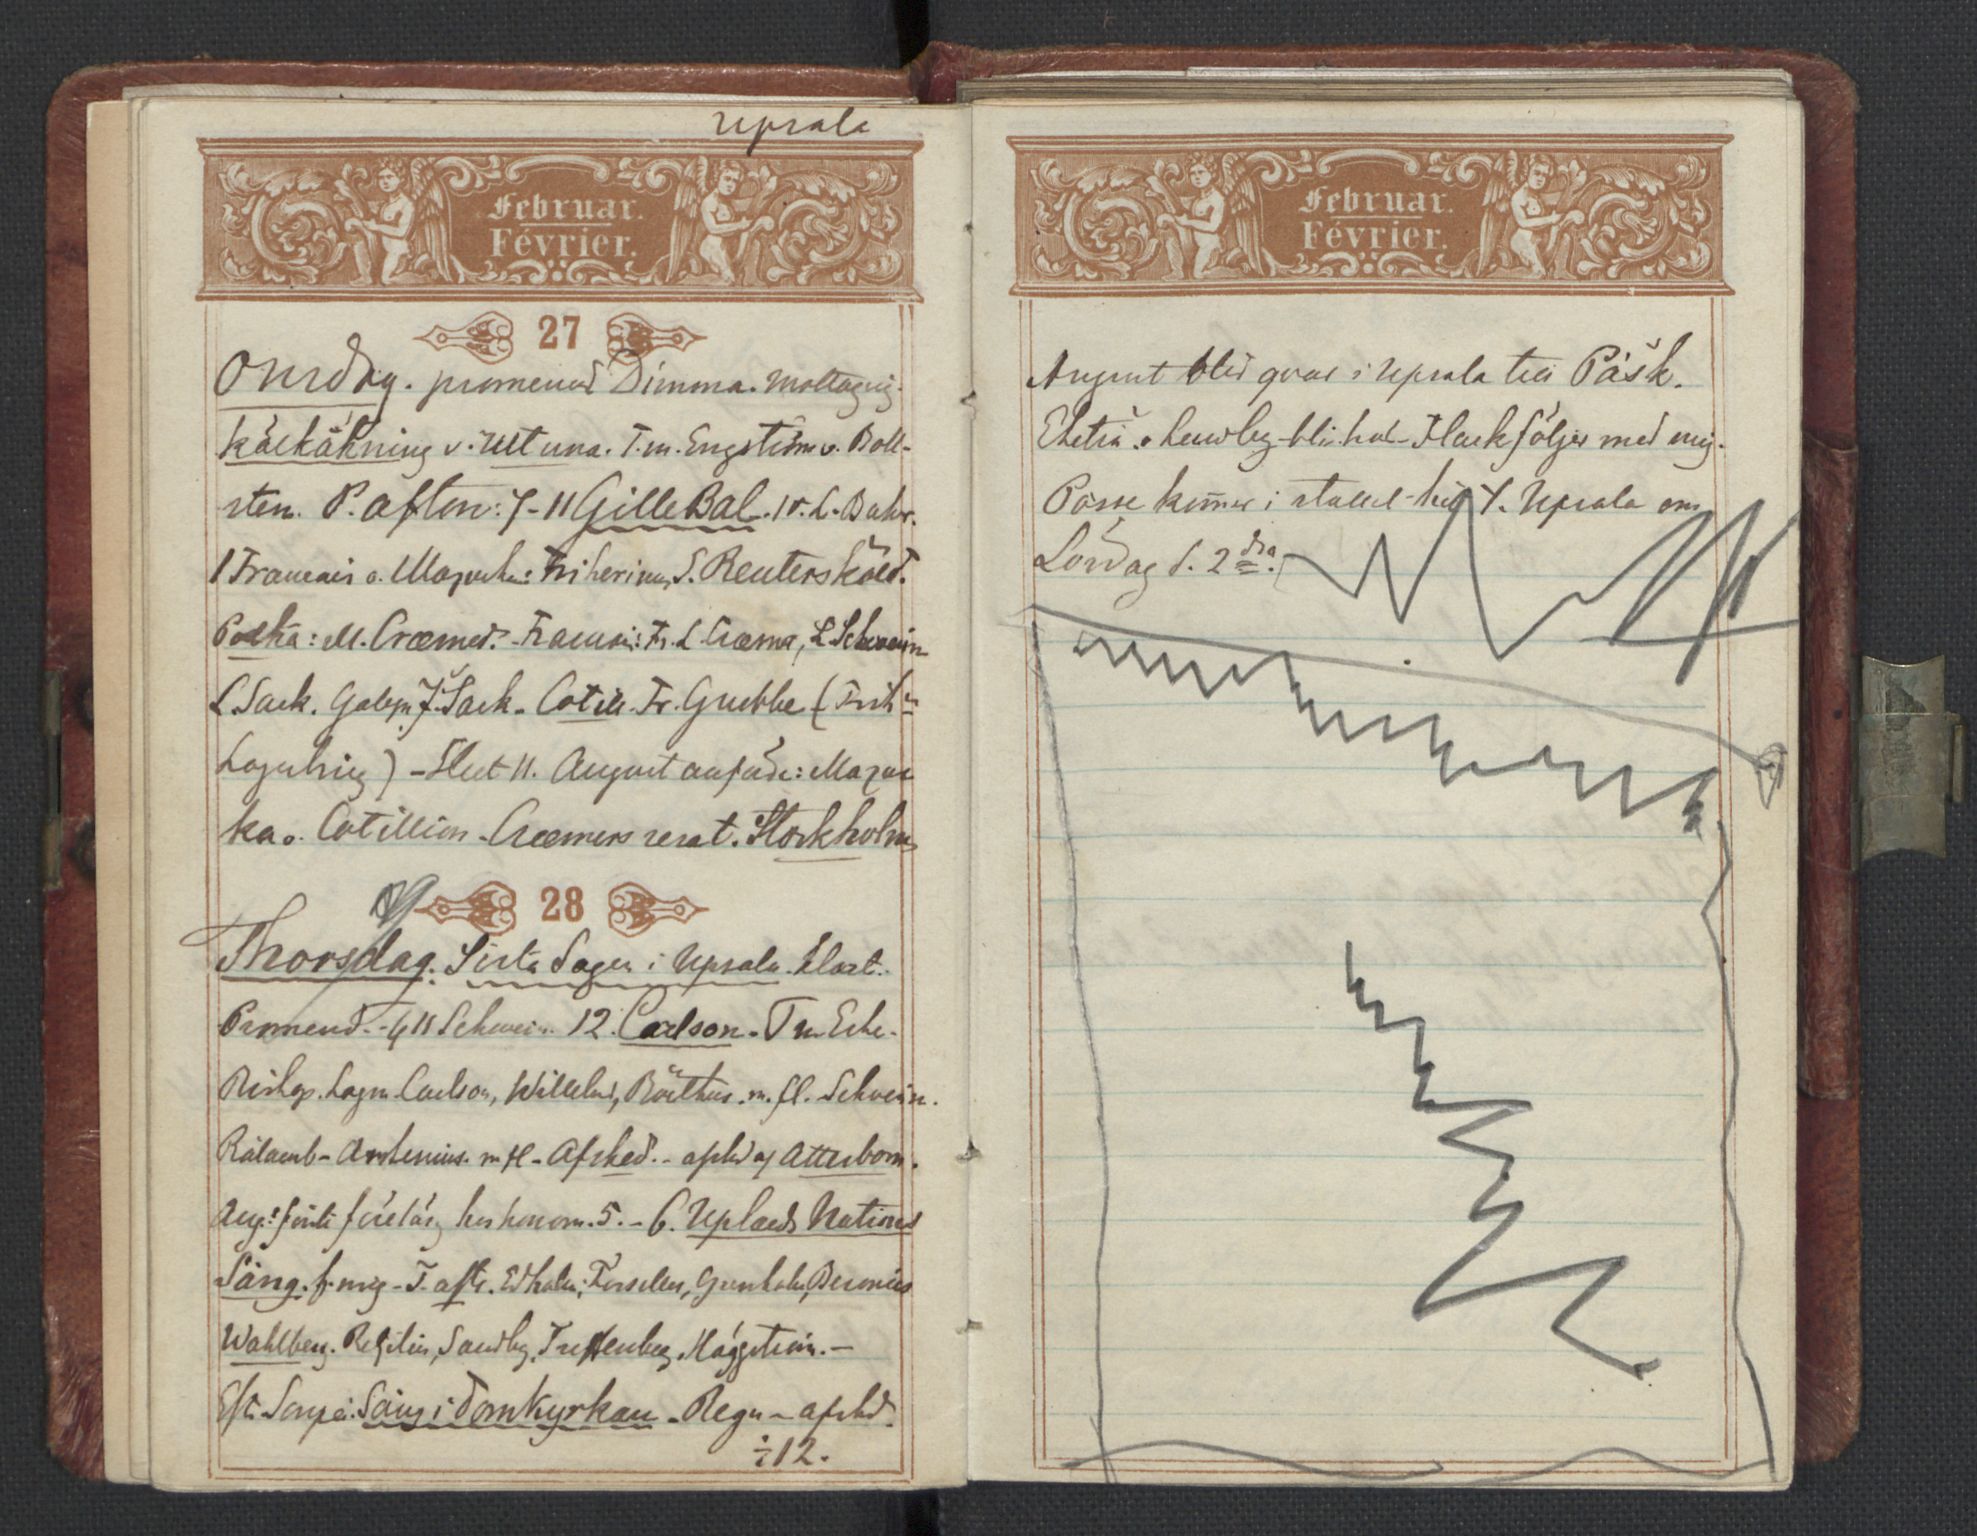 Upsala
Februar.
Février.
27
Onsdag. promenad Dimma. Mottagnig.
kälkåkning v. Ultuna. T. m. Engström v. Boll-
sten. P. afton: 7-11 Gille Bal. 
1 Francais o. Mazurka: Friherinn. S. Reuterskÿold.
Polka: M. Cræmer. Francais: Fr. L Cræmer, L Schwerin
L. Sack. Galop J. Sack. Cotill. Fr. Grubbe (Frih
Lagerbrieg) - Slut 11. August anförde: Mazur
ka o. Cotillion - Cræmers resat. Stockholm
28
Thorsdag. Sista dagen i Upsala. Klart.
Promend. Schwerin. 12. Carlson. T m
Biskop. Lagm Carlson, Willebrd, Böethius. m. fl. Schwerin.
Rålamb - Arrhenius. m fl - Afsked. - afskd af Atterbom.
Aug: förste föreläsg hos honom. 5. - 6. Uplands Nations
Sång. f. mig - T. aft. Edholm,
Wahlberg. Sandbg,
Eft. Soupé: Sång i Domkyrkan - Regn - afskd.
÷12.
Februar.
Février.
August blir qvar i Upsala till Påsk.
blir hos Flack följer med mig.
Posse kommer i stället hit t. Upsala om
Lördag d. 2dra.